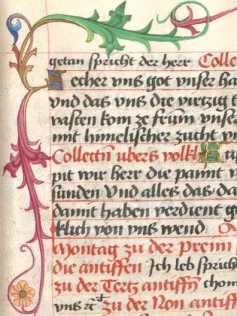 getan spricht der herr Collec
echer vns got vnser ha
vnd das vns die virtzig t
vasten kom ze frum vnser
mit himelischer zucht vn
Collectn vbers volkh
pit wir herr die pant v
sunden vnd alles das da
damit haben verdient g
klich von vns wend
Montag zu der preim
die antiffen Ich leb sprich
zu der Tertz antiffn
vns zu der Non antiff